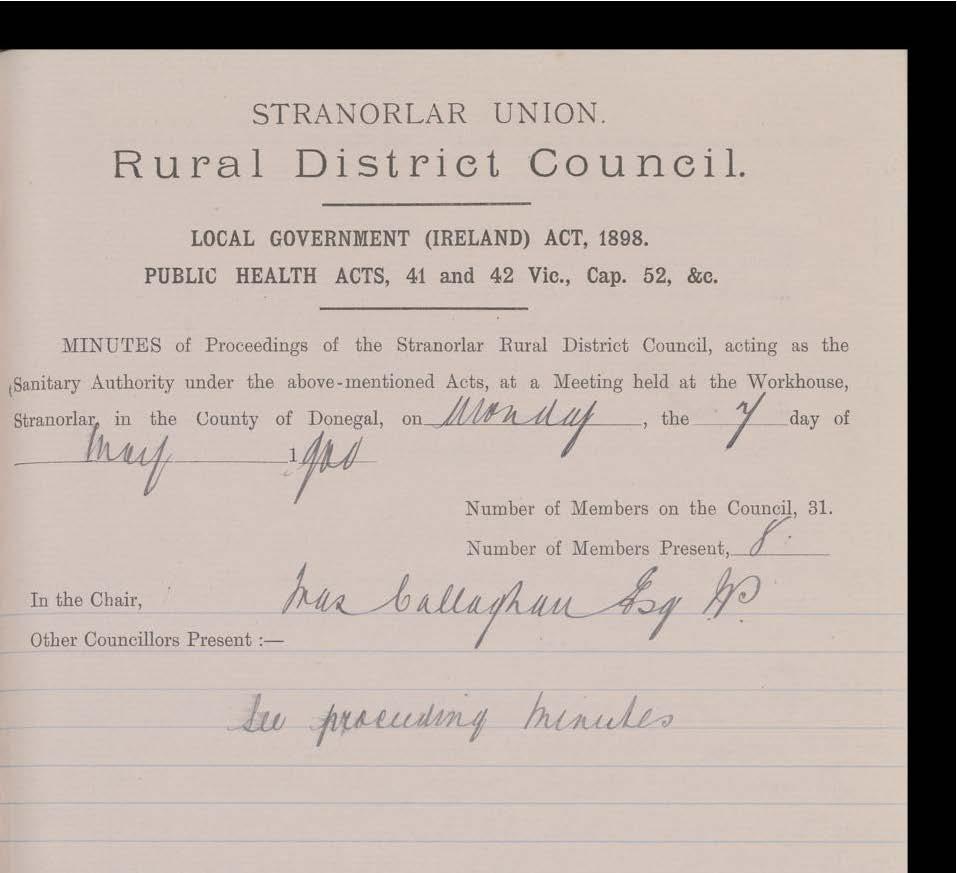 STRANORLAR UNION.
Rural District Council.
LOCAL GOVERNMENT (IRELAND) ACT, 1898.
PUBLIC HEALTH ACTS, 41 and 42 Vic., Cap. 52, &c.
MINUTES of Proceedings of the Stranorlar Rural District Council, acting as the
Sanitary Authority under the above-mentioned Acts, at a Meeting held at the Workhouse,
Stranorlar, in the County of Donegal, on Monday, the 7 day of
May 1900
Number of Members on the Council, 31.
Number of Members Present, 8.
In the Chair, Callaghan Esq JP
Other Councillors Present :—
See proceeding minutes